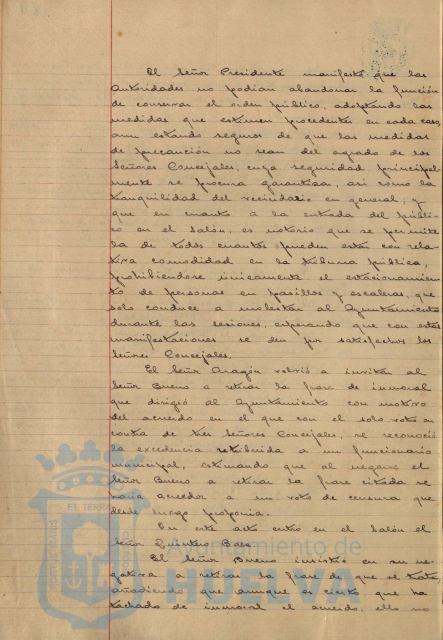 El Señor Presidente manifestó que las
autoridades no podian abandonar la función
de conservar el orden público, adoptando las
medidas que estimen procedentes en cada caso,
aun estando seguros de que las medidas
de precaución no sean del agrado de los
Señores Concejales, cuya seguridad principal-
mente se procura garantizar, asi como la
tranquilidad del vecindario en general, y
que en cuanto a la entrada del públi-
co en el Salón, es notorio que se permite
la de todos cuantos pueden estar con rela-
tiva comodidad en la tribuna pública,
prohibiendose únicamente el estacionamien-
to de personas en pasillos y escaleras, que
solo conduce a molestar al Ayuntamiento
durante las sesiones, esperando que con estas
manifestaciones se den por satisfechos los
Señores Concejales.
El Señor Aragón volvió a invitar al
Señor Bueno a retirar la frase de inmoral
que dirigió al Ayuntamiento con motivo
del acuerdo en el que con el solo voto en
contra de tres Señores Concejales, se reconoció
la excedencia retribuida a un funcionario
municipal, estimando que al negarse el
Señor Bueno a retirar la frase citada se
haria acreedor a un voto de censura que
desde luego proponia.
En este acto entró en el Salón el
Señor Quintero Baez.
El Señor Bueno insistió en su ne-
gativa a retirar la frase de que se trata,
añadiendo que aunque es cierto que ha
tachado de inmoral el acuerdo, ello no
Ayuntamiento de
HUELVA